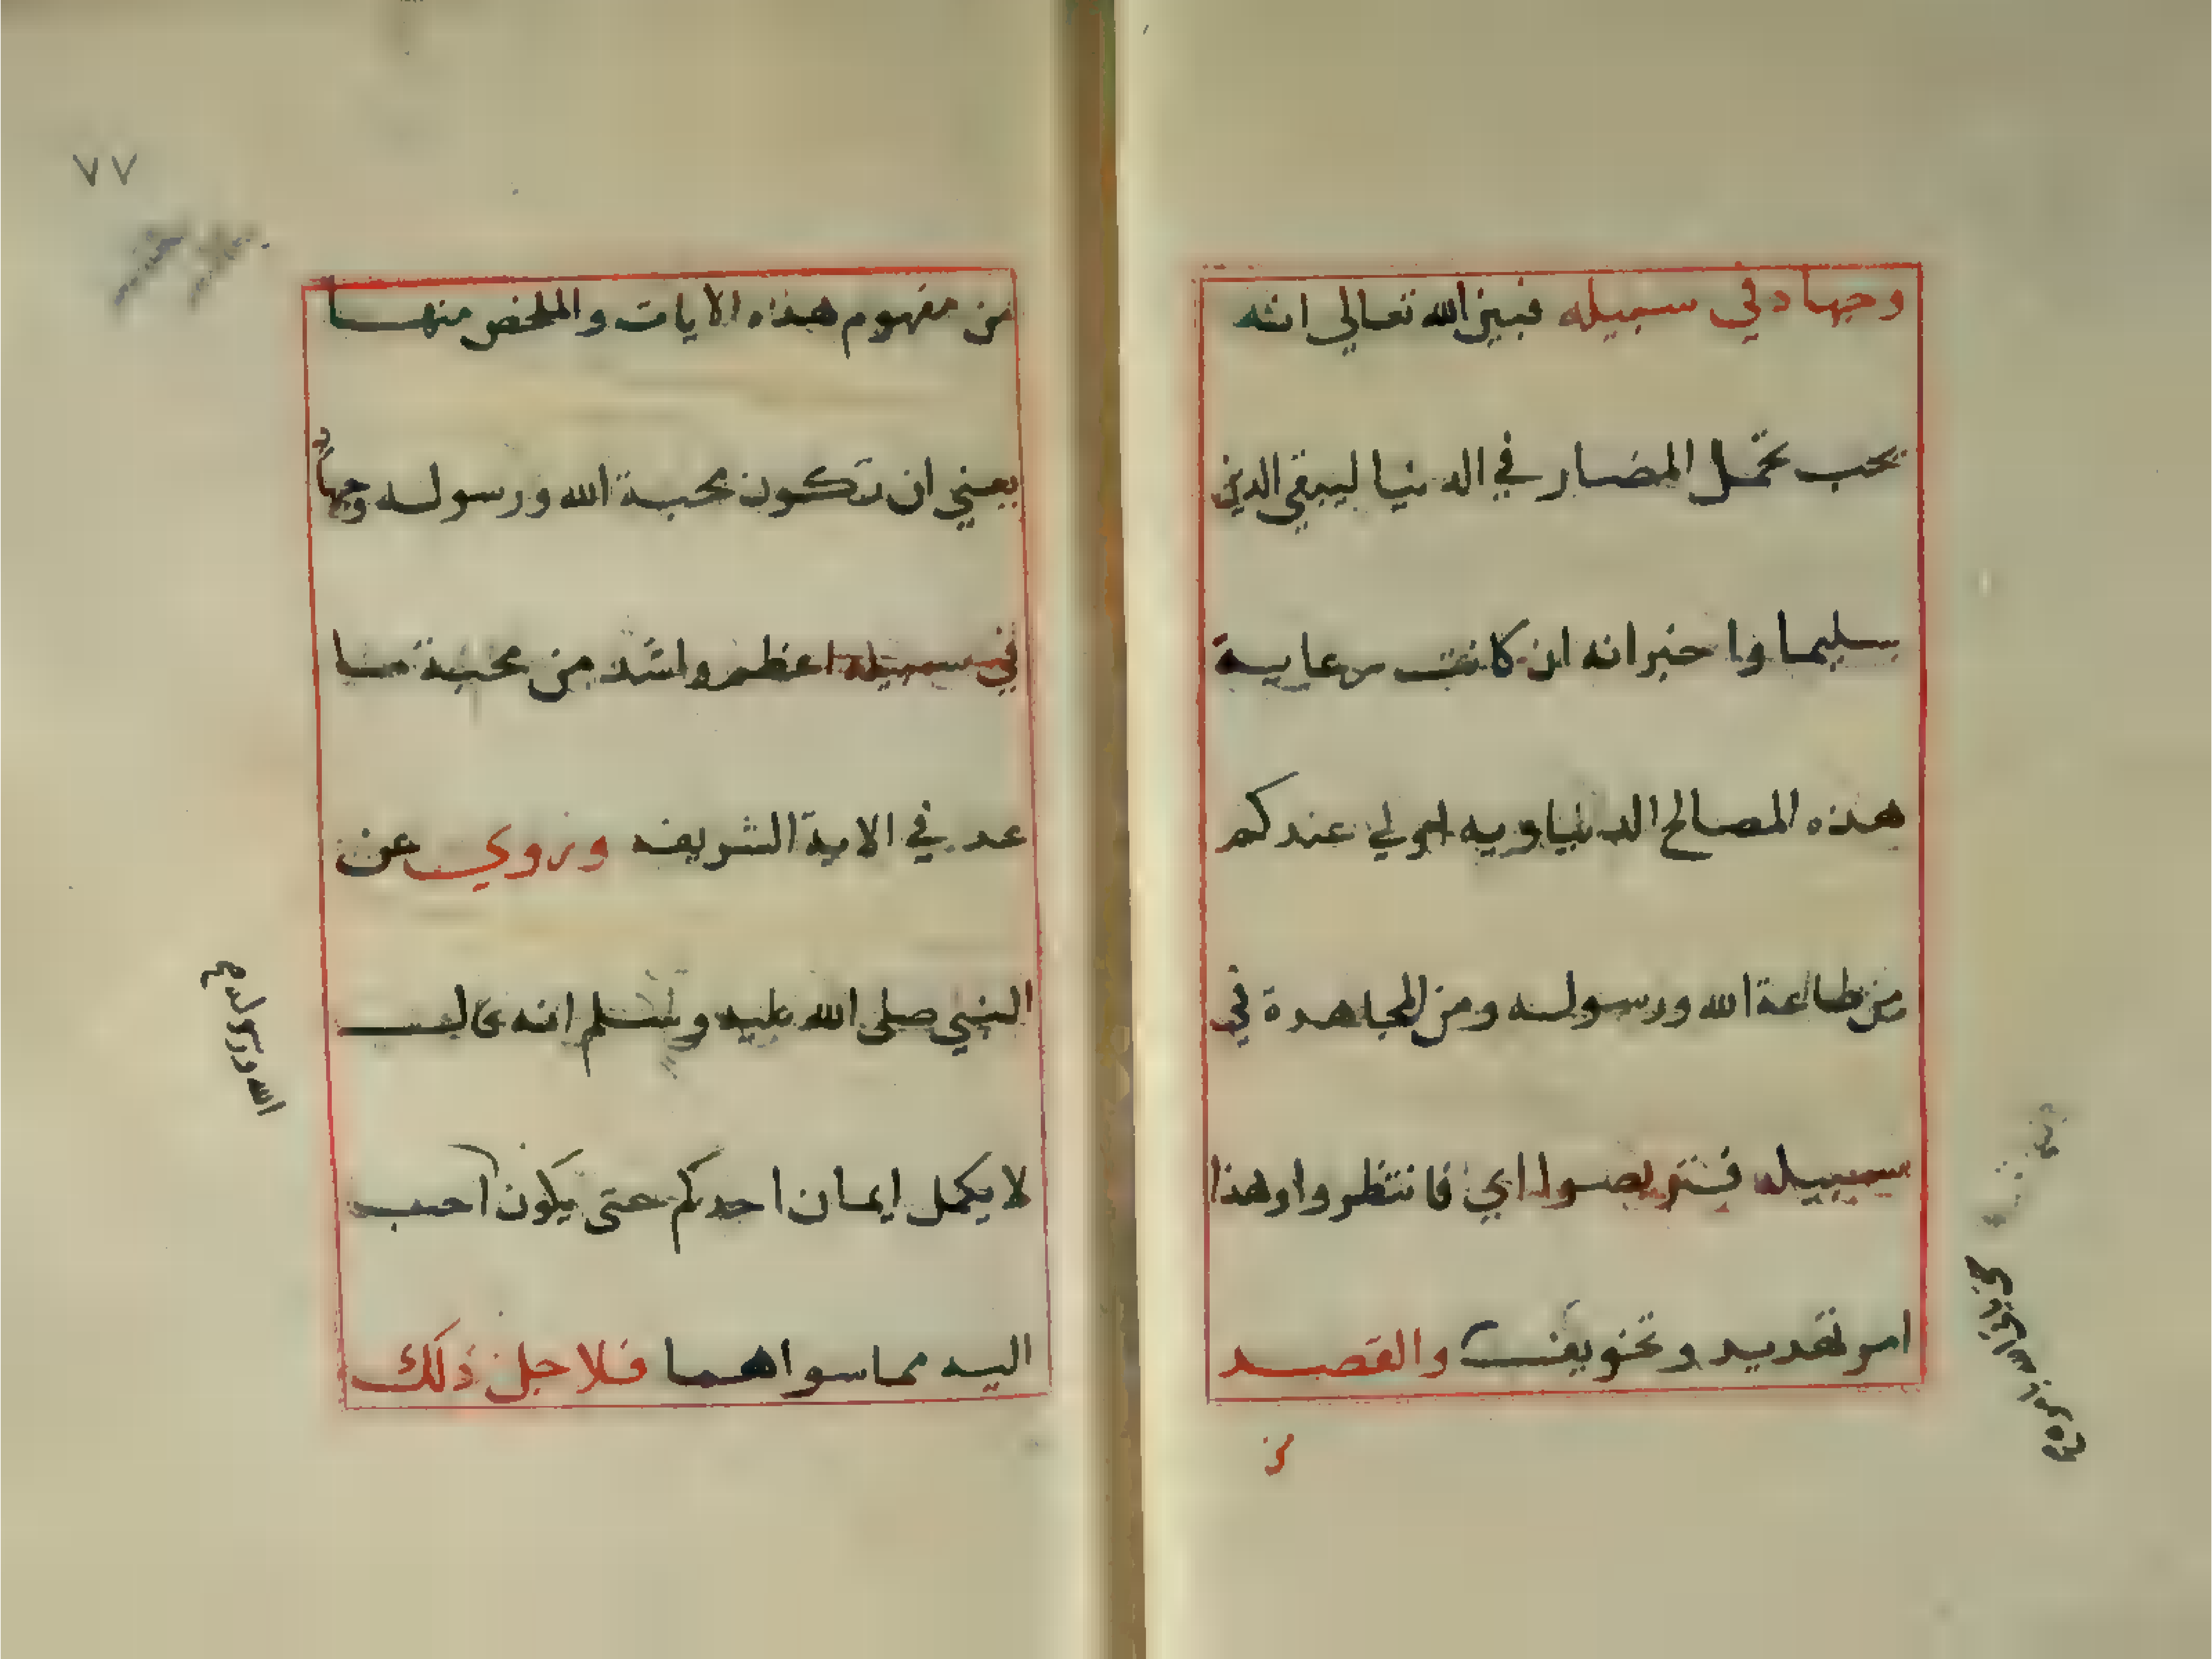 وجهاد في سبيله فبين الله تعالي انه
يجب تحمل المضار في الدنيا ليبقي الدين
سليما واخبر انه ان كانت رعاية
هذه المصالح الدنياويه اولي عندكم
من طاعة الله ورسوله ومن المجاهدة في
سبيله فتربصوا اي فانتظروا وهذا
امر تهديد وتخويف والقصد
من
٧٧
من مفهوم هذه الايات والملخص منها
يعني ان تكون محبة الله ورسوله وجهاد
في سبيله اعظم واشد من محبة ما
عد في الاية الشريفه وروي عن
النبي صلى الله عليه وسلم انه قال
لا يكمل ايمان احدكم حتى يكون احب
اليه مما سواهما فلاجل ذلك